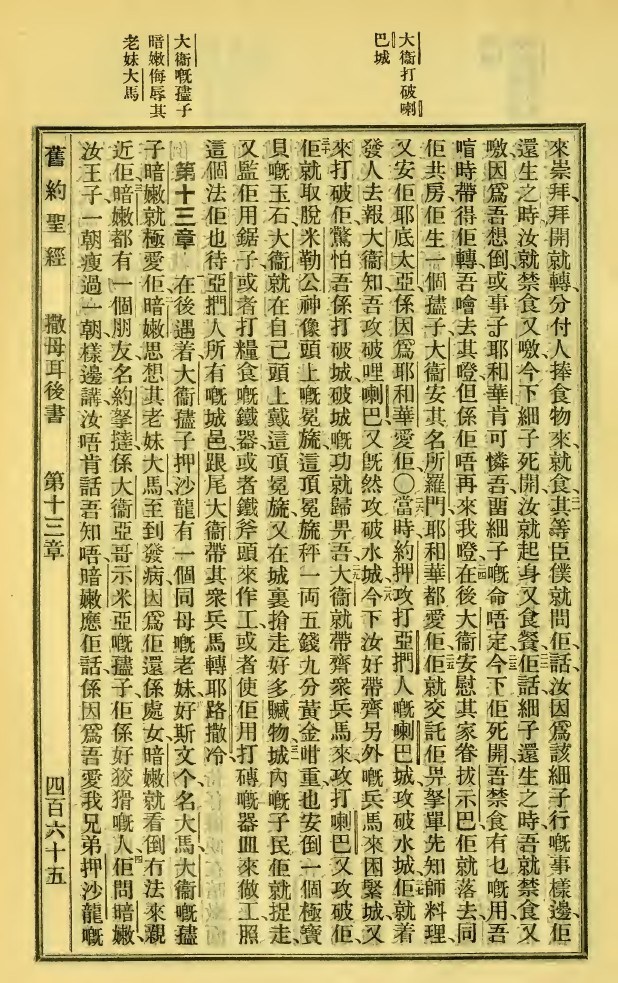 大衞打破喇
巴城
大衞嘅𡥧子
暗嫩侮辱其
老妹大馬
來崇拜拜開就轉分付人捧食物來就食其等臣僕就問佢話汝因爲該細子行嘅事樣邊佢
還生之時汝就禁食又噭今下細子死開汝就起身又食餐佢話細子還生之時吾就禁食又
噭因爲吾想倒或事子耶和華肯可憐吾畱細子嘅命唔定今下佢死開吾禁食有乜嘅用吾
喑時帶得佢轉吾噲去其嶝但係佢唔再來我嶝在後大衞安慰其家眷拔示巴佢就落去同
佢共房佢生一個𡥧子大衞安其名所羅門耶和華都愛佢佢就交託佢畀拏單先知師料理
又安佢耶底太亞係因爲耶和華愛佢〇當時約押攻打亞捫人嘅喇巴城攻破水城佢就着
發人去報大衞知吾攻破哩喇巴又旣然攻破水城今下汝好帶齊另外嘅兵馬來困緊城又
來打破佢驚怕吾係打破城破城嘅功就歸畀吾大衞就帶齊衆兵馬來攻打喇巴又攻破佢
佢就取脫米勒公神像頭上嘅冕旒這頂冕旒秤一両五錢九分黃金咁重也安倒一個極寶
貝嘅玉石大衞就在自己頭上戴這頂冕旒又在城裏搶走好多贓物城內嘅子民佢就捉走
又監佢用鋸子或者打糧食嘅鐵器或者鐵斧頭來作工或者使佢用打磚嘅器皿來做工照
這個法佢也待亞捫人所有嘅城邑跟尾大衞帶其衆兵馬轉耶路撒冷
第十三章 在後遇着大衞𡥧子押沙龍有一個同母嘅老妹好斯文个名大馬大衞嘅𡥧
子暗嫩就極愛佢暗嫩思想其老妹大馬至到發病因爲佢還係處女暗嫩就看倒冇法來親
近佢暗嫩都有一個朋友名約拏撻係大衞亞哥示米亞嘅𡥧子佢係好狡猾嘅人佢問暗嫩
汝王子一朝瘦過一朝樣邊講汝唔肯話吾知唔暗嫩應佢話係因爲吾愛我兄弟押沙龍嘅
舊約聖經 撒母耳後書 第十三章 四百六十五